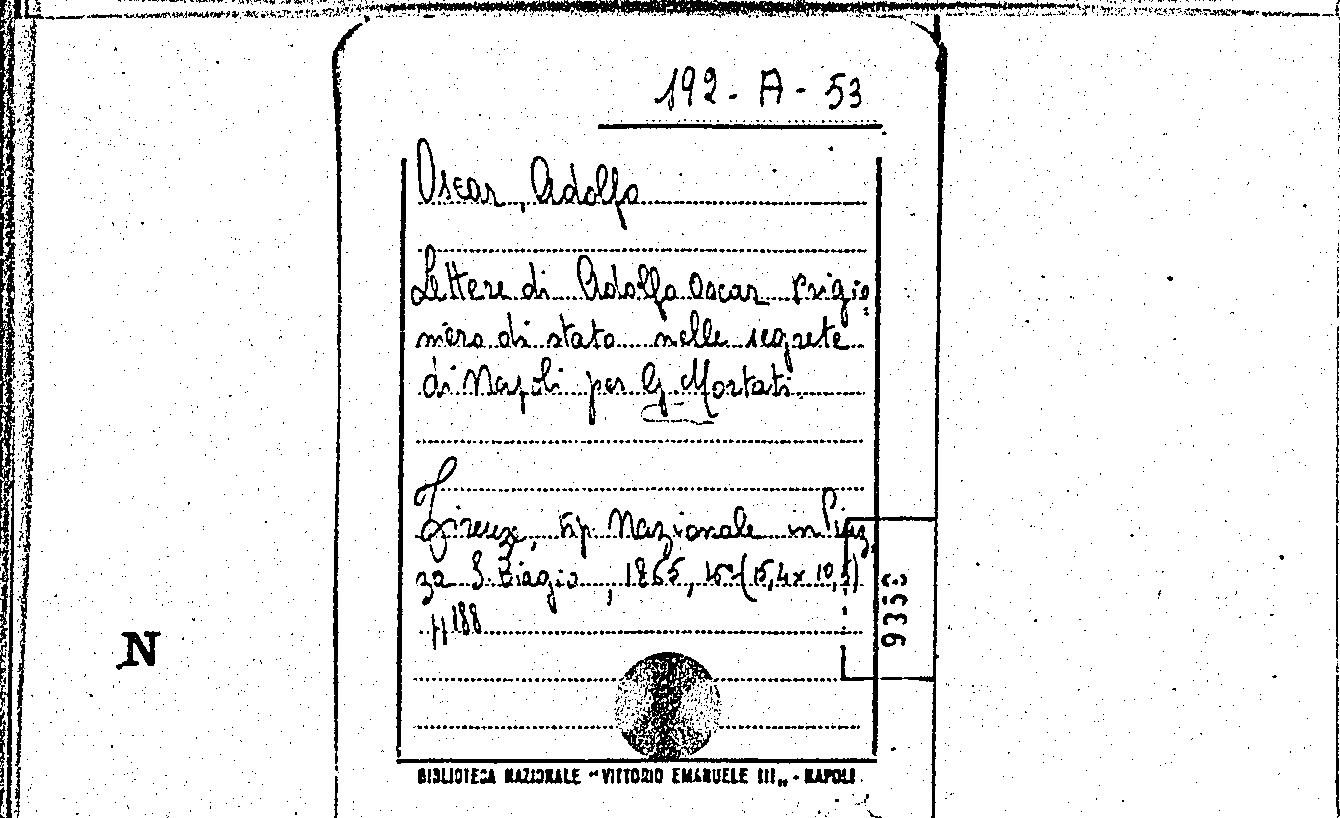 192 - A - 53
Oscar, Adolfo
Lettere di Adolfo Oscar prigio
niero di stato nelle segrete
di Napoli per G. Mortati.
Firenze, tip. Nazionale in Piaz
za S. Biagio, 1865, 16° (15,4x10,5)
p. 188
9358
N
BIBLIOTECA NAZIONALE "VITTORIO EMANUELE III„ - NAPOLI